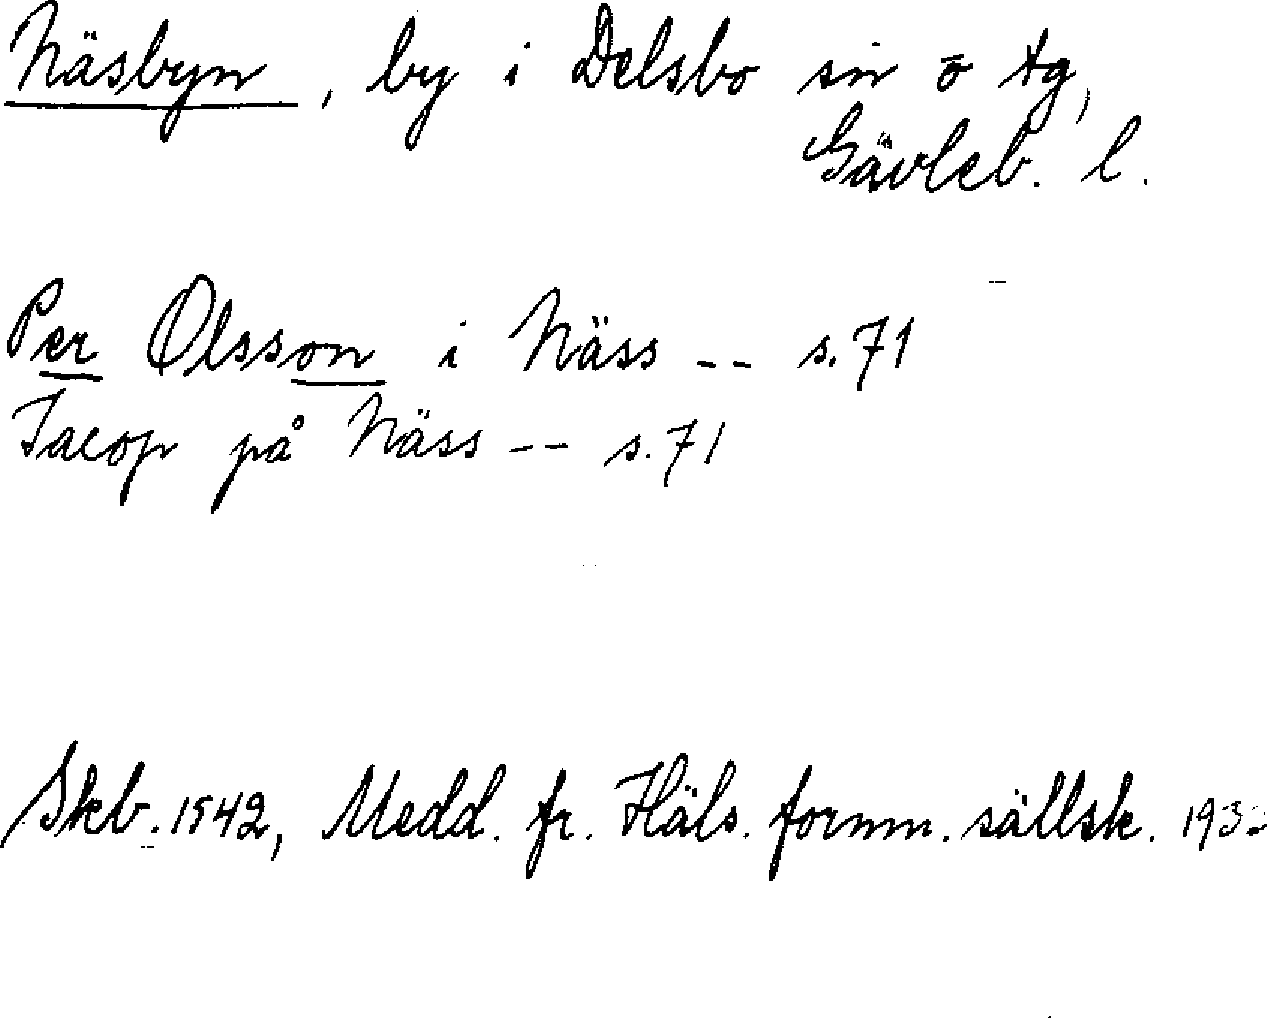 Näsbyn, by i Delsbo sn o tg,
Gävleb. l.
Per Olsson i Näss -- s. 71
Jacop på Näss -- s. 71
Skb. 1542, Medd. fr. Häls. fornm. sällsk.